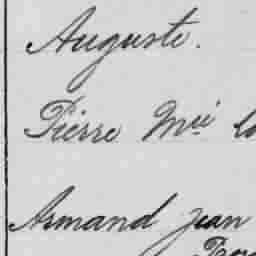 Auguste.
Pierre Mie
Armand Jean